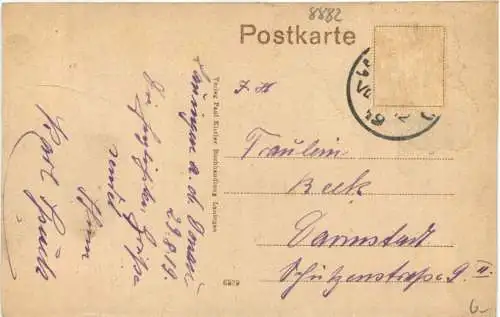 8882
Postkarte
Lauingen a. d. Donau
29.8.19
Die herzlichsten Grüße
sendet
Ihnen
Karl
Verlag Paul Kistler Buchhandlung Lauingen
6929
Fräulein
Beck
Darmstadt
Schützenstraße 9. II.
6-